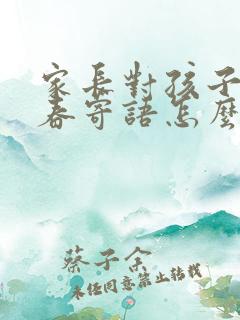 家長對孩子
春寄語怎麼
蔡子余
未任同意禁止转载